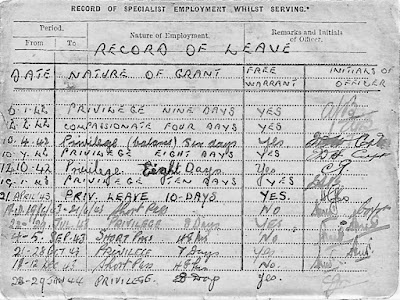 RECORD OF SPECIALIST EMPLOYMENT WHILST SERVING.*
Period. Nature of Employment. Remarks and Initials of Officer.
From To
RECORD OF LEAVE
DATE NATURE OF GRANT FREE WARRANT INITIALS OF OFFICER
1.42 PRIVILEGE NINE DAYS YES
2.42 COMPASSIONATE FOUR DAYS YES
10.4.42 Privilege (balance) Six days Yes
10.7.42 PRIVILEGE EIGHT DAYS YES
12.10.42 Privilege Eight Days Yes
19.1.43 PRIVILEGE TEN DAYS YES
21 APRIL/43 PRIV. LEAVE 10-DAYS YES.
Short Pass No
PRIVILEGE Days Yes
4-5. SEP.43 SHORT Pass 48 hrs No
21-28 OCT 43 PRIVILEGE 7 Days Yes
DEC 43 Short Pass 48 hrs No
22-29 JAN 44 PRIVILEGE. 8 Days Yes.